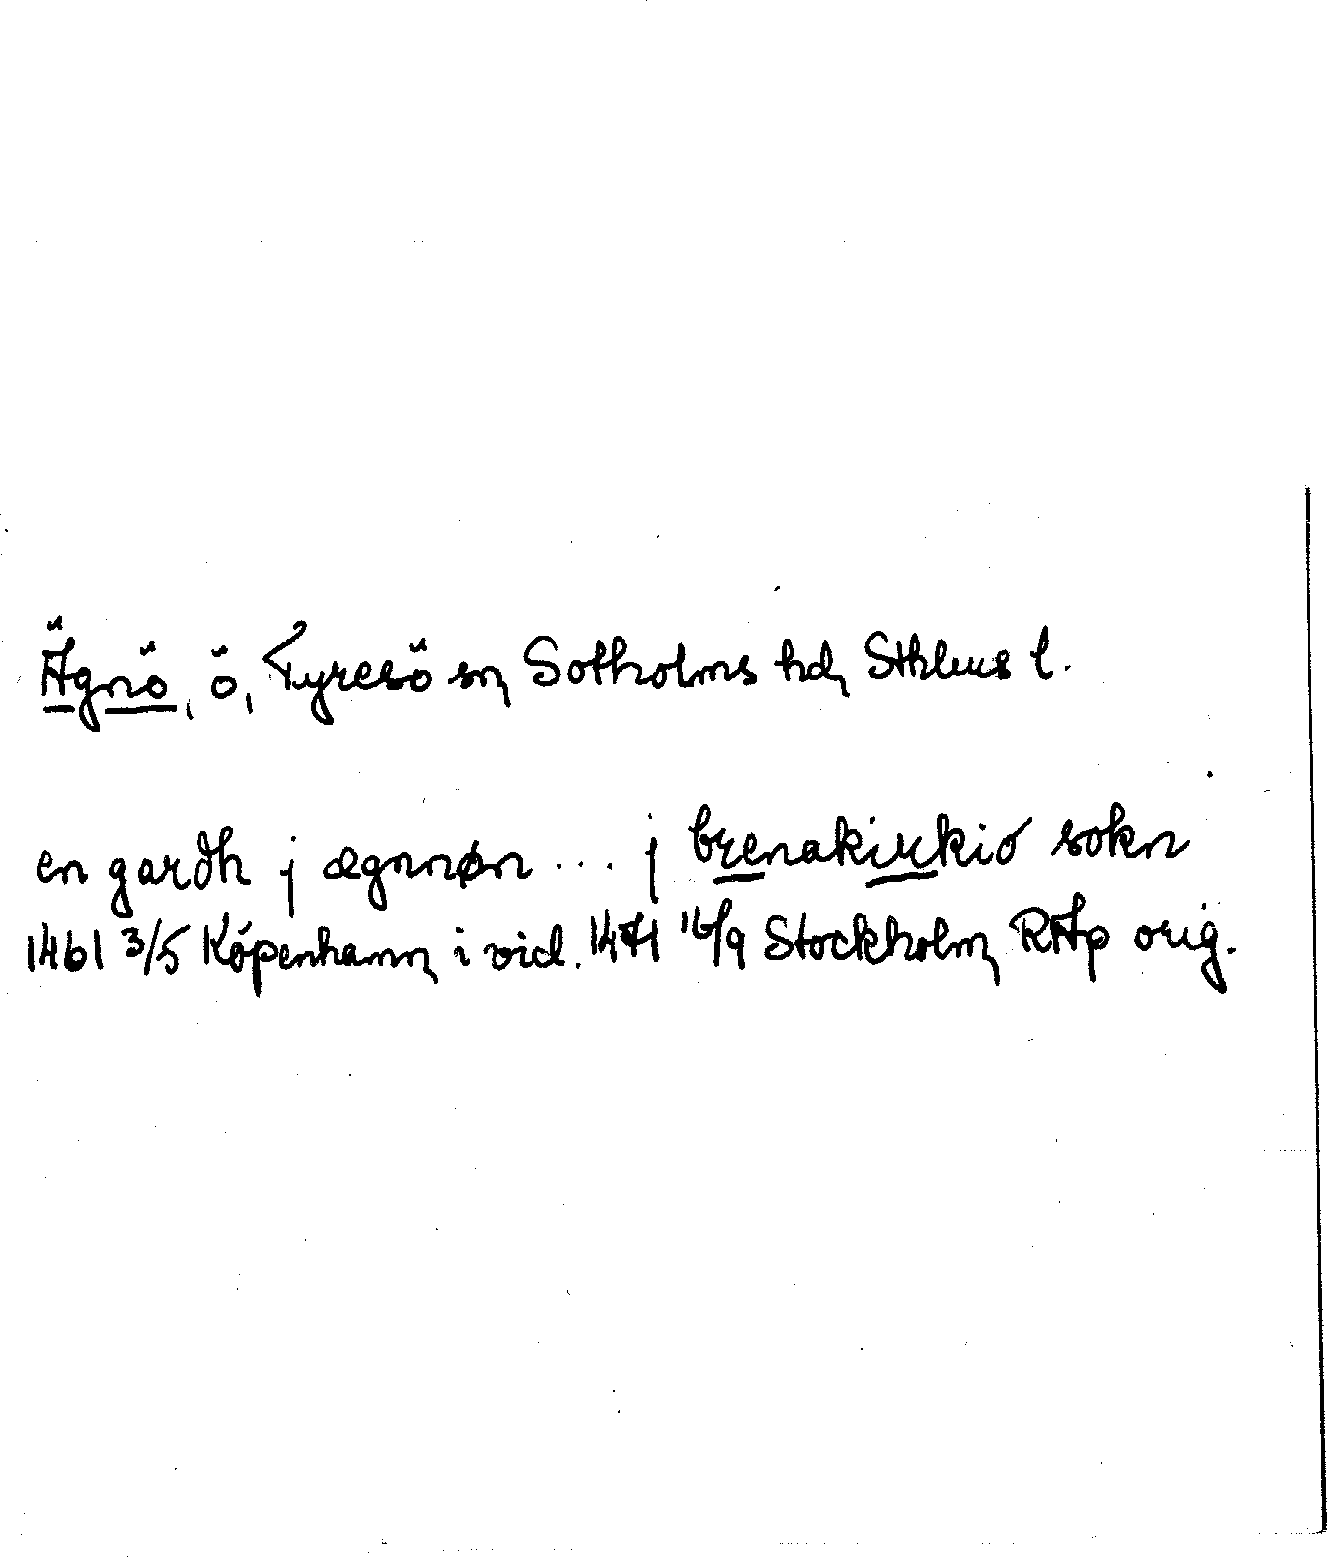 Ägnö, ö, Tyresö sn, Sotholms hd, Sthlms l.
en gardh j ægnnøn ... j brenakirkio sokn
1461 3/5 Köpenhamn i vid. 1471 16/9 Stockholm RAp orig.